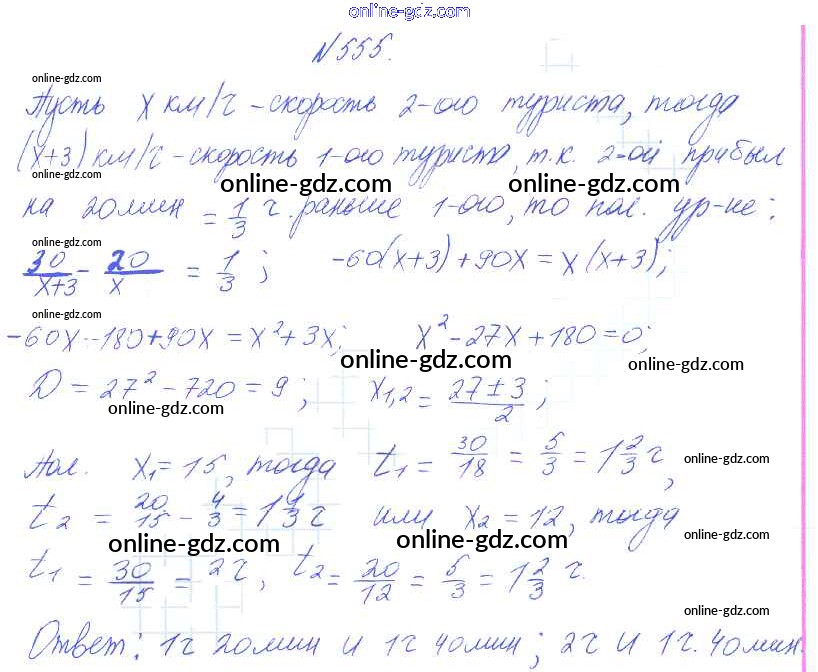 online-gdz.com
N 555.
online-gdz.com
Пусть x км/ч - скорость 2-ого туриста, тогда
(x+3) км/ч - скорость 1-ого туриста, т.к. 2-ой прибыл
online-gdz.com
online-gdz.com online-gdz.com
на 20 мин = 1/3 ч. раньше 1-ого, то пол. ур-ие:
online-gdz.com
30/x+3 - 20/x = 1/3; -60(x+3)+90x = x(x+3);
online-gdz.com
-60x-180+90x = x²+3x; x²-27x+180=0;
online-gdz.com online-gdz.com
D = 27²-720 = 9; x1,2 = 27±3/2;
online-gdz.com
Пол. x1=15, тогда t1 = 30/18 = 5/3 = 1 2/3 ч,
online-gdz.com
t2 = 20/15 - 4/3 = 1 1/3 ч или x2=12, тогда
online-gdz.com
online-gdz.com online-gdz.com
t1 = 30/15 = 2ч, t2 = 20/12 = 5/3 = 1 2/3 ч.
online-gdz.com
Ответ: 1ч 20мин и 1ч 40мин; 2ч и 1ч. 40мин.